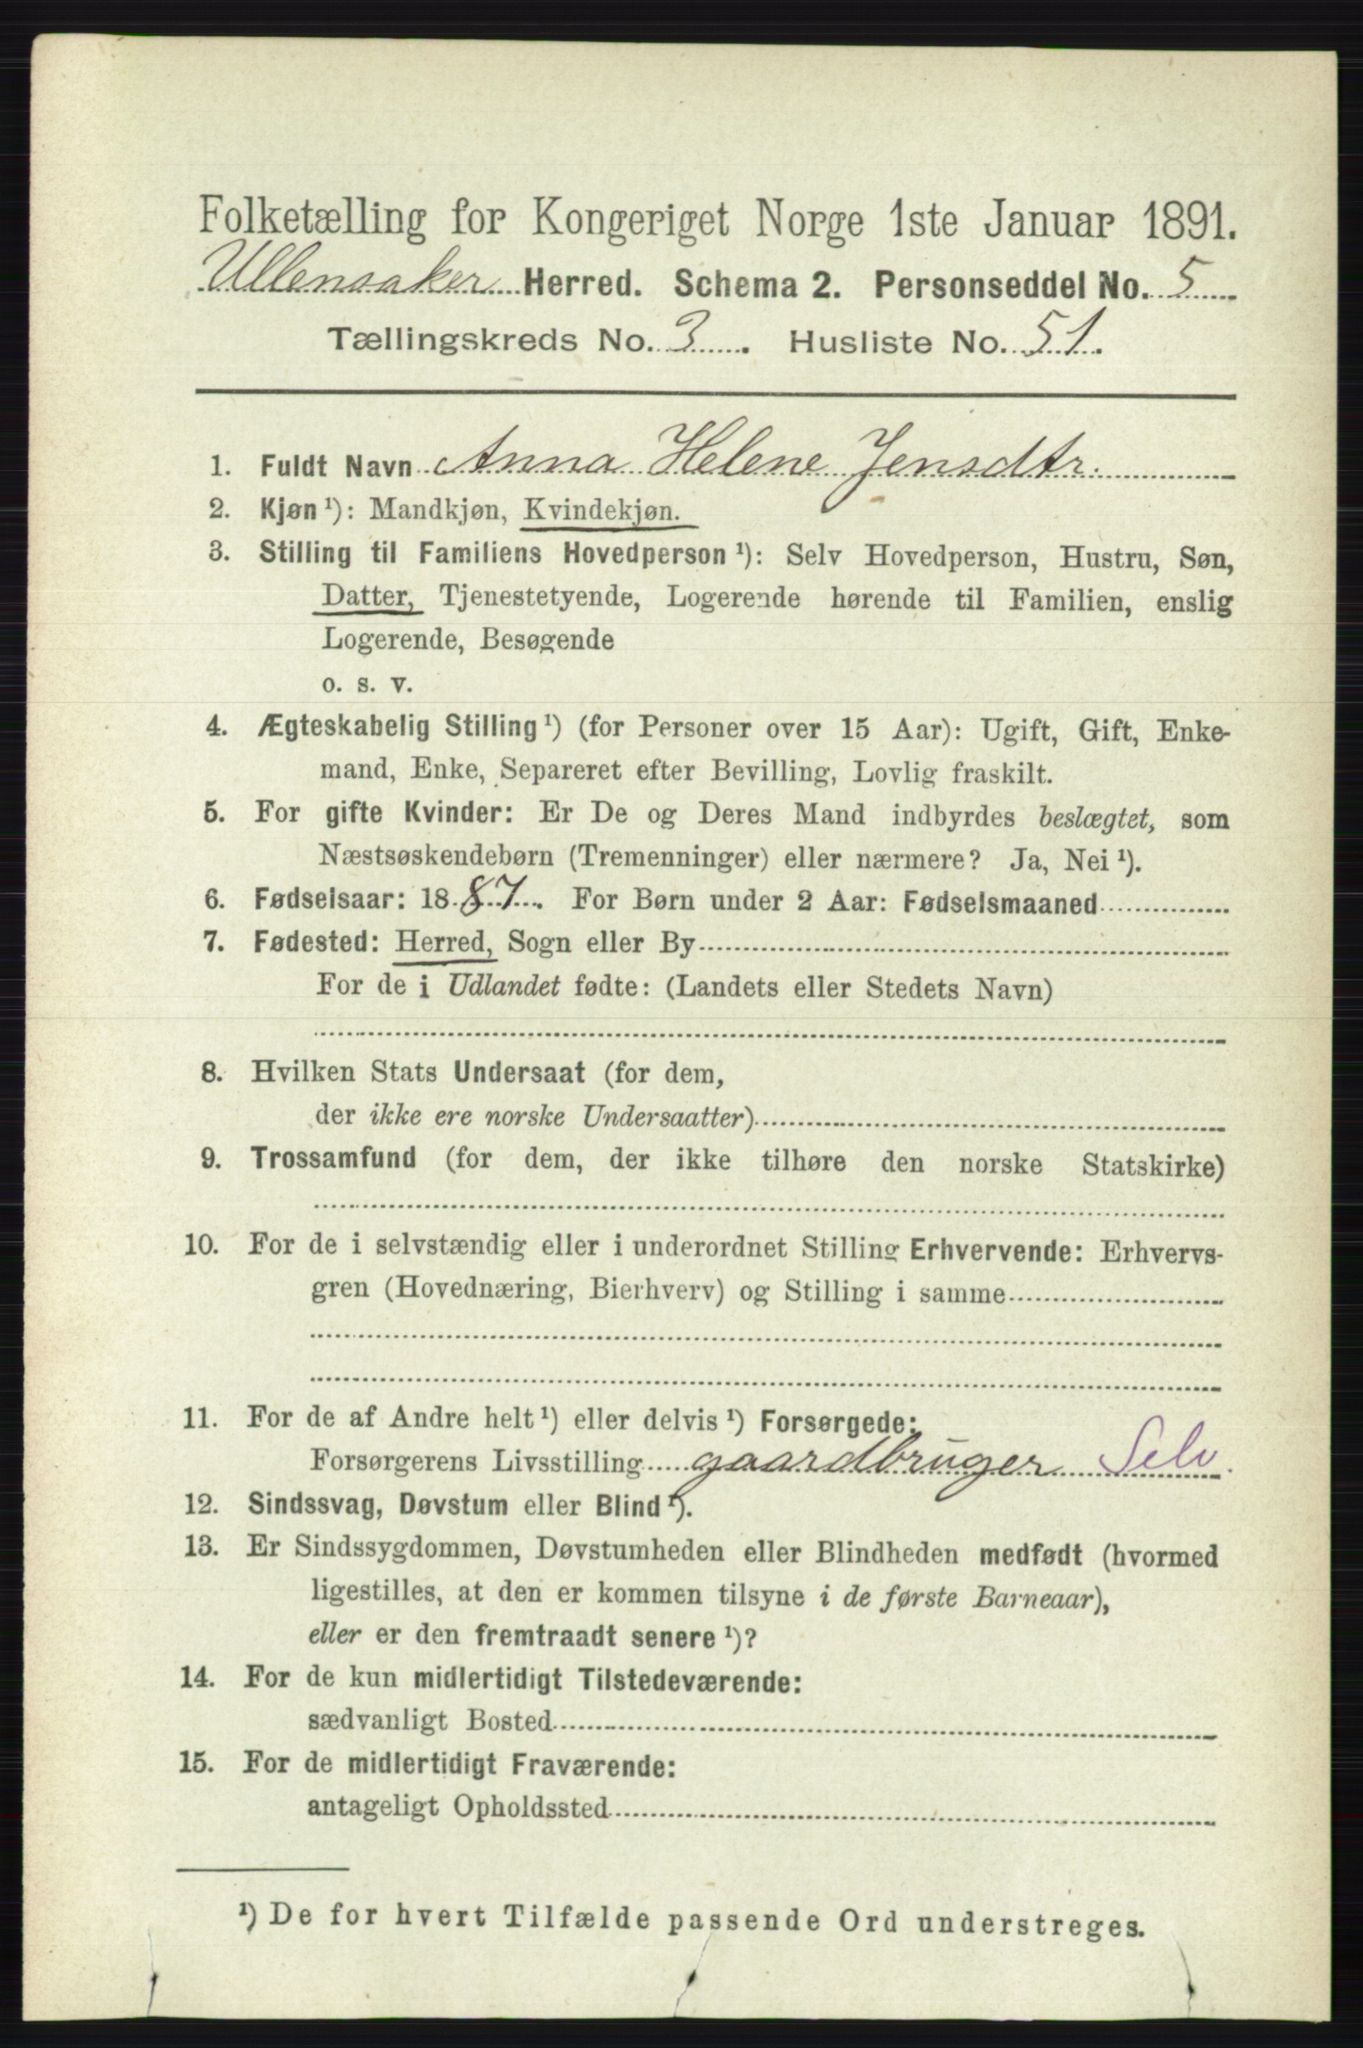 Folketælling for Kongeriget Norge 1ste Januar 1891.
Ullensaker Herred. Schema 2. Personseddel No. 5
Tællingskreds No. 3. Husliste No. 51.
1. Fuldt Navn Anna Helene Jensdtr.
2. Kjøn ¹): Mandkjøn, Kvindekjøn.
3. Stilling til Familiens Hovedperson ¹): Selv Hovedperson, Hustru, Søn,
Datter, Tjenestetyende, Logerende hørende til Familien, enslig
Logerende, Besøgende
o. s. v.
4. Ægteskabelig Stilling ¹) (for Personer over 15 Aar): Ugift, Gift, Enke-
mand, Enke, Separeret efter Bevilling, Lovlig fraskilt.
5. For gifte Kvinder: Er De og Deres Mand indbyrdes beslægtet, som
Næstsøskendebørn (Tremenninger) eller nærmere? Ja, Nei ¹).
6. Fødselsaar: 1887. For Børn under 2 Aar: Fødselsmaaned
7. Fødested: Herred, Sogn eller By
For de i Udlandet fødte: (Landets eller Stedets Navn)
8. Hvilken Stats Undersaat (for dem,
der ikke ere norske Undersaatter)
9. Trossamfund (for dem, der ikke tilhøre den norske Statskirke)
10. For de i selvstændig eller i underordnet Stilling Erhvervende: Erhvervs-
gren (Hovednæring, Bierhverv) og Stilling i samme
11. For de af Andre helt ¹) eller delvis ¹) Forsørgede:
Forsørgerens Livsstilling gaardbruger Selv.
12. Sindssvag, Døvstum eller Blind ¹).
13. Er Sindssygdommen, Døvstumheden eller Blindheden medfødt (hvormed
ligestilles, at den er kommen tilsyne i de første Barneaar),
eller er den fremtraadt senere ¹)?
14. For de kun midlertidigt Tilstedeværende:
sædvanligt Bosted
15. For de midlertidigt Fraværende:
antageligt Opholdssted
¹) De for hvert Tilfælde passende Ord understreges.